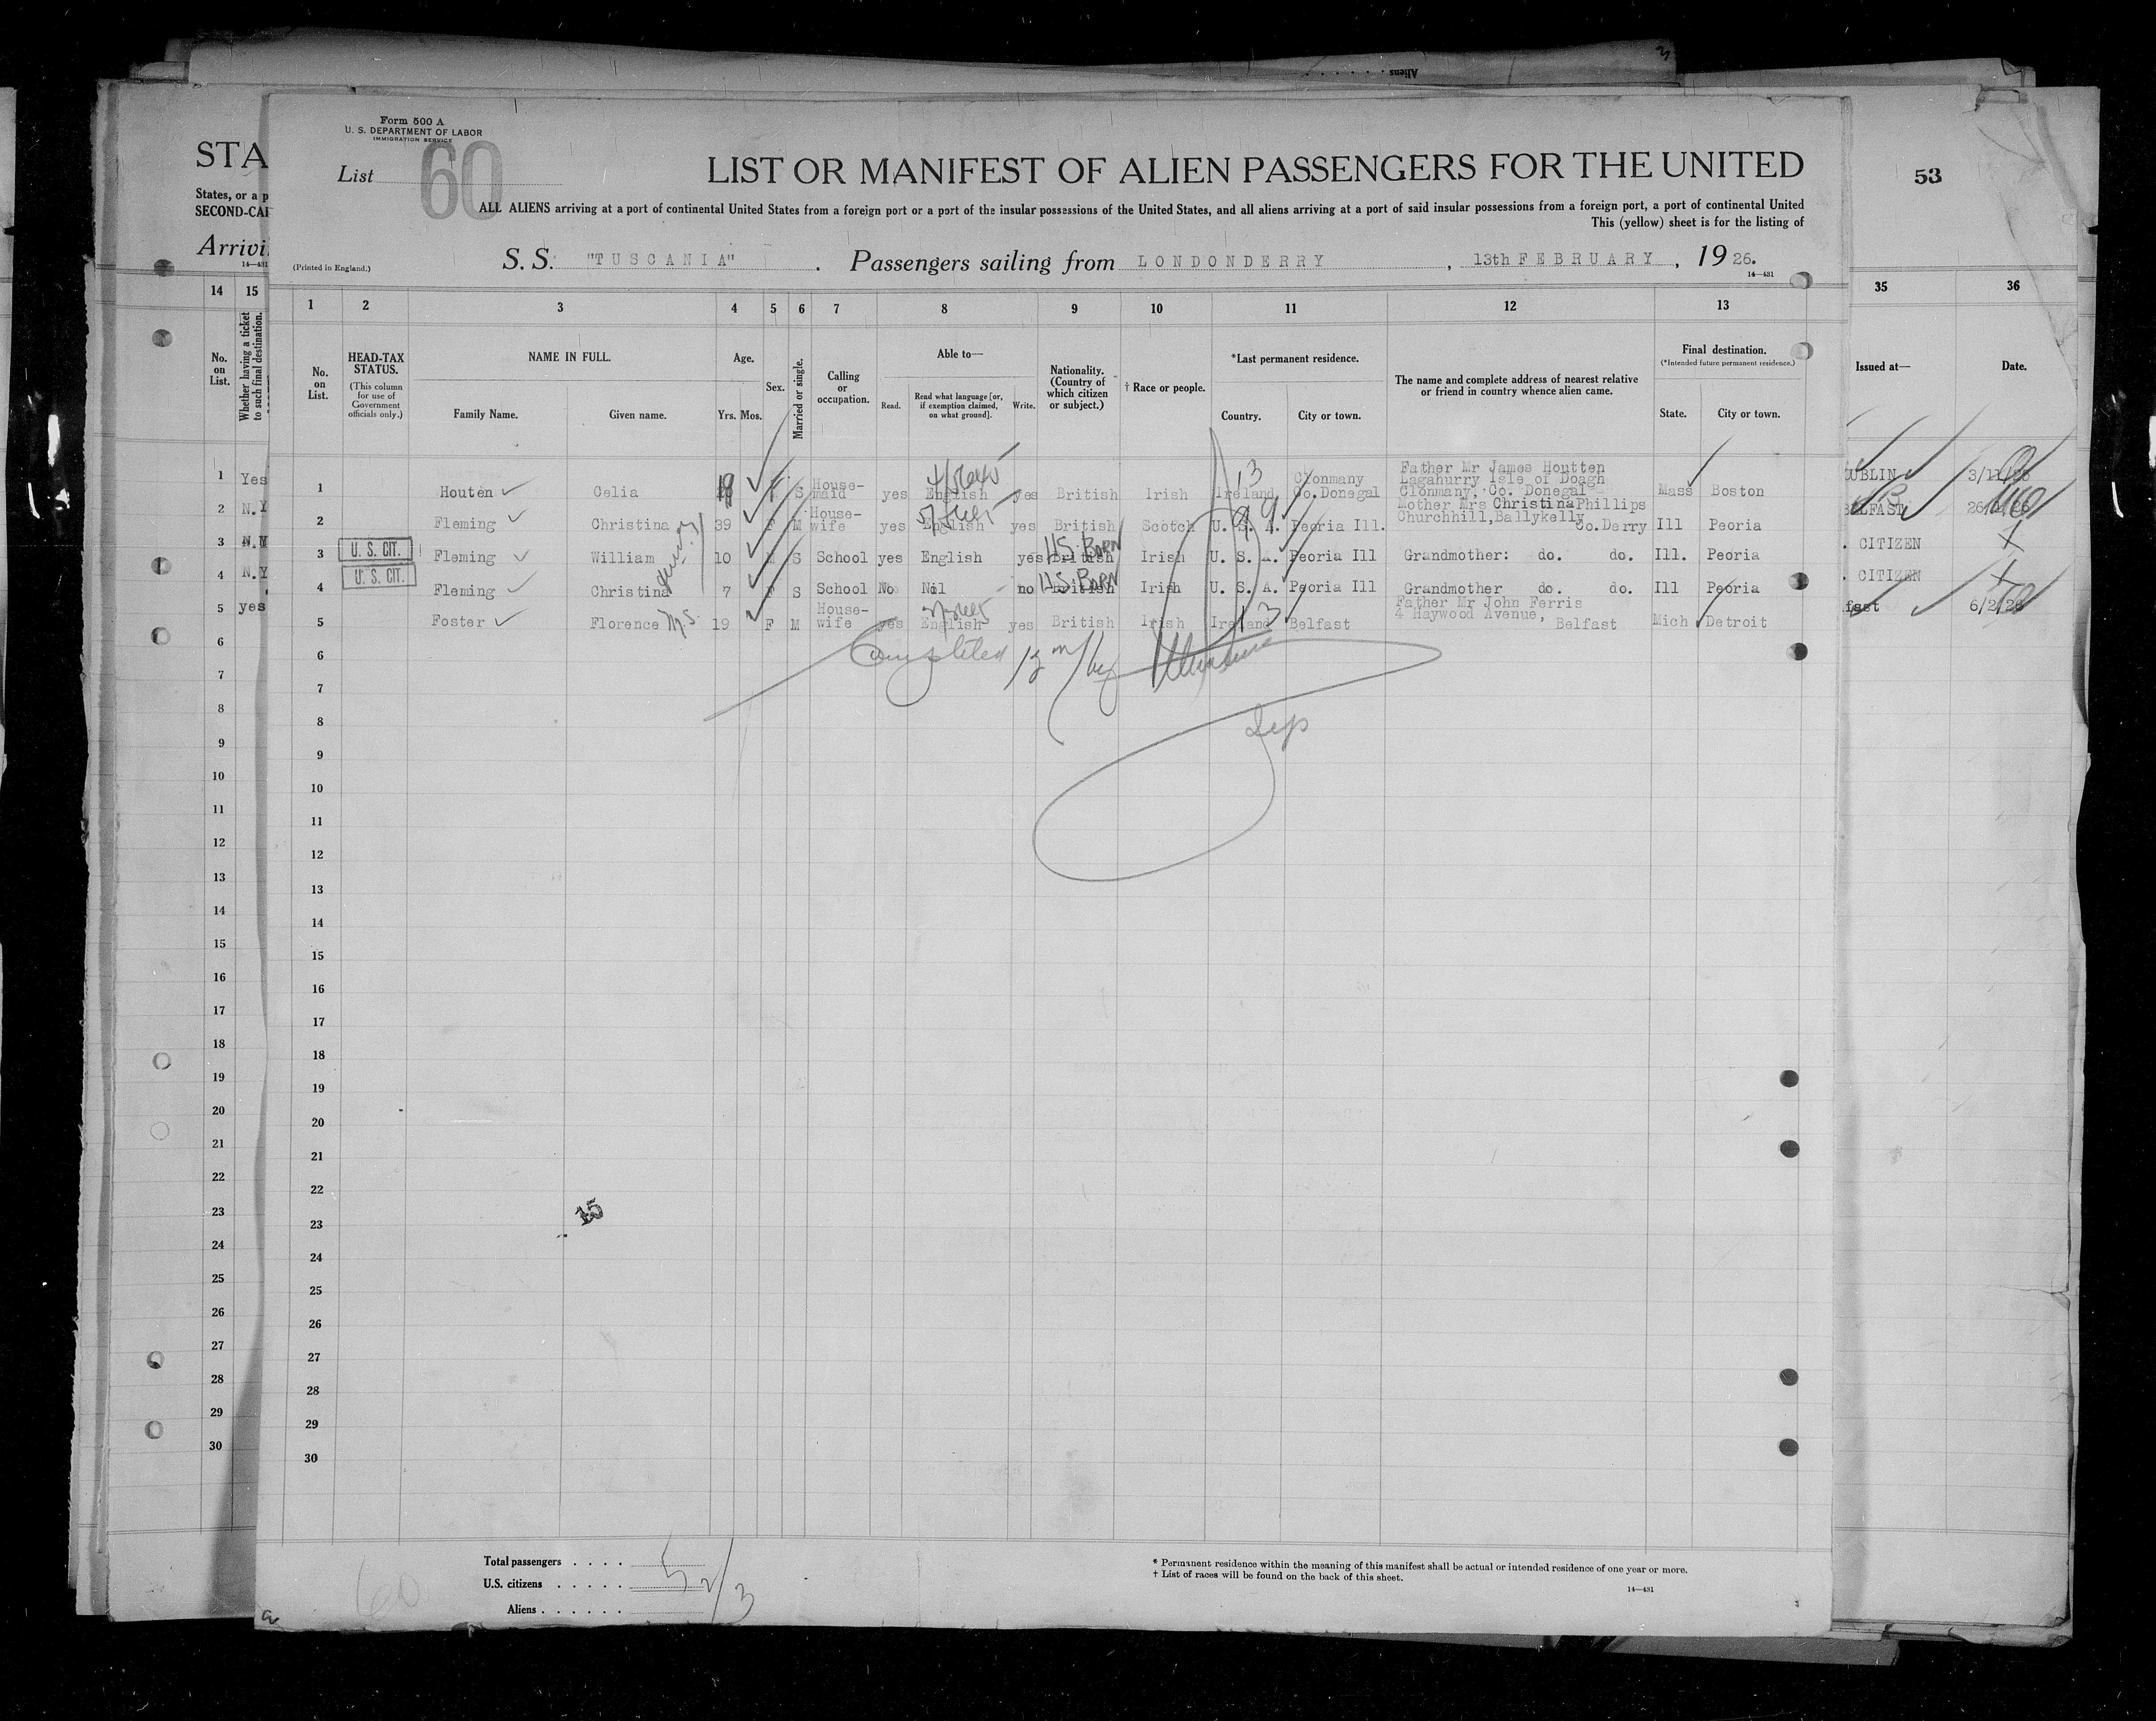 Form 500 A
U. S. DEPARTMENT OF LABOR
IMMIGRATION SERVICE
List 60
LIST OR MANIFEST OF ALIEN PASSENGERS FOR THE UNITED
ALL ALIENS arriving at a port of continental United States from a foreign port or a port of the insular possessions of the United States, and all aliens arriving at a port of said insular possessions from a foreign port, a port of continental United
This (yellow) sheet is for the listing of
(Printed in England.)
S. S. "TUSCANIA" . Passengers sailing from LONDONDERRY , 13th FEBRUARY , 19 26.
14—431
1 2 3 4 5 6 7 8 9 10 11 12 13
No. on List.
HEAD-TAX STATUS.
(This column for use of Government officials only.)
NAME IN FULL.
Family Name. Given name.
Age.
Yrs. Mos.
Sex.
Married or single.
Calling or occupation.
Able to—
Read. Read what language [or, if exemption claimed, on what ground]. Write.
Nationality. (Country of which citizen or subject.)
† Race or people.
*Last permanent residence.
Country. City or town.
The name and complete address of nearest relative or friend in country whence alien came.
Final destination.
(*Intended future permanent residence.)
State. City or town.
1 Houten Celia F S House-maid yes English yes British Irish Ireland Clonmany Co. Donegal Father Mr James Houtten Lagahurry Isle of Doagh Clonmany, Co. Donegal Mass Boston
2 Fleming Christina 39 F M House-wife yes English yes British Scotch U. S. A. Peoria Ill. Mother Mrs Christina Phillips Churchhill, Ballykelly Co. Derry Ill Peoria
3 U. S. CIT. Fleming William 10 S School yes English yes British U.S. BORN Irish U. S. A. Peoria Ill Grandmother: do. do. Ill. Peoria
4 U. S. CIT. Fleming Christina 7 F S School No Nil no British U.S. BORN Irish U. S. A. Peoria Ill Grandmother do. do. Ill Peoria
5 Foster Florence 19 F M House-wife yes English yes British Irish Ireland Belfast Father Mr John Ferris 4 Haywood Avenue, Belfast Mich Detroit
Completed
6
7
8
9
10
11
12
13
14
15
16
17
18
19
20
21
22
23
24
25
26
27
28
29
30
15
Total passengers . . . . 5
U.S. citizens . . . . . 2
Aliens . . . . . . 3
60
* Permanent residence within the meaning of this manifest shall be actual or intended residence of one year or more.
† List of races will be found on the back of this sheet.
14—431
STA
States, or a p
SECOND-CAI
Arrivi
14—431
14 15
No. on List.
Whether having a ticket to such final destination.
1 Yes
2 N.Y
3 N.Y
4 N.Y
5 yes
6
7
8
9
10
11
12
13
14
15
16
17
18
19
20
21
22
23
24
25
26
27
28
29
30
53
35 36
Issued at— Date.
UBLIN
CITIZEN
CITIZEN
6/2/26
Aliens